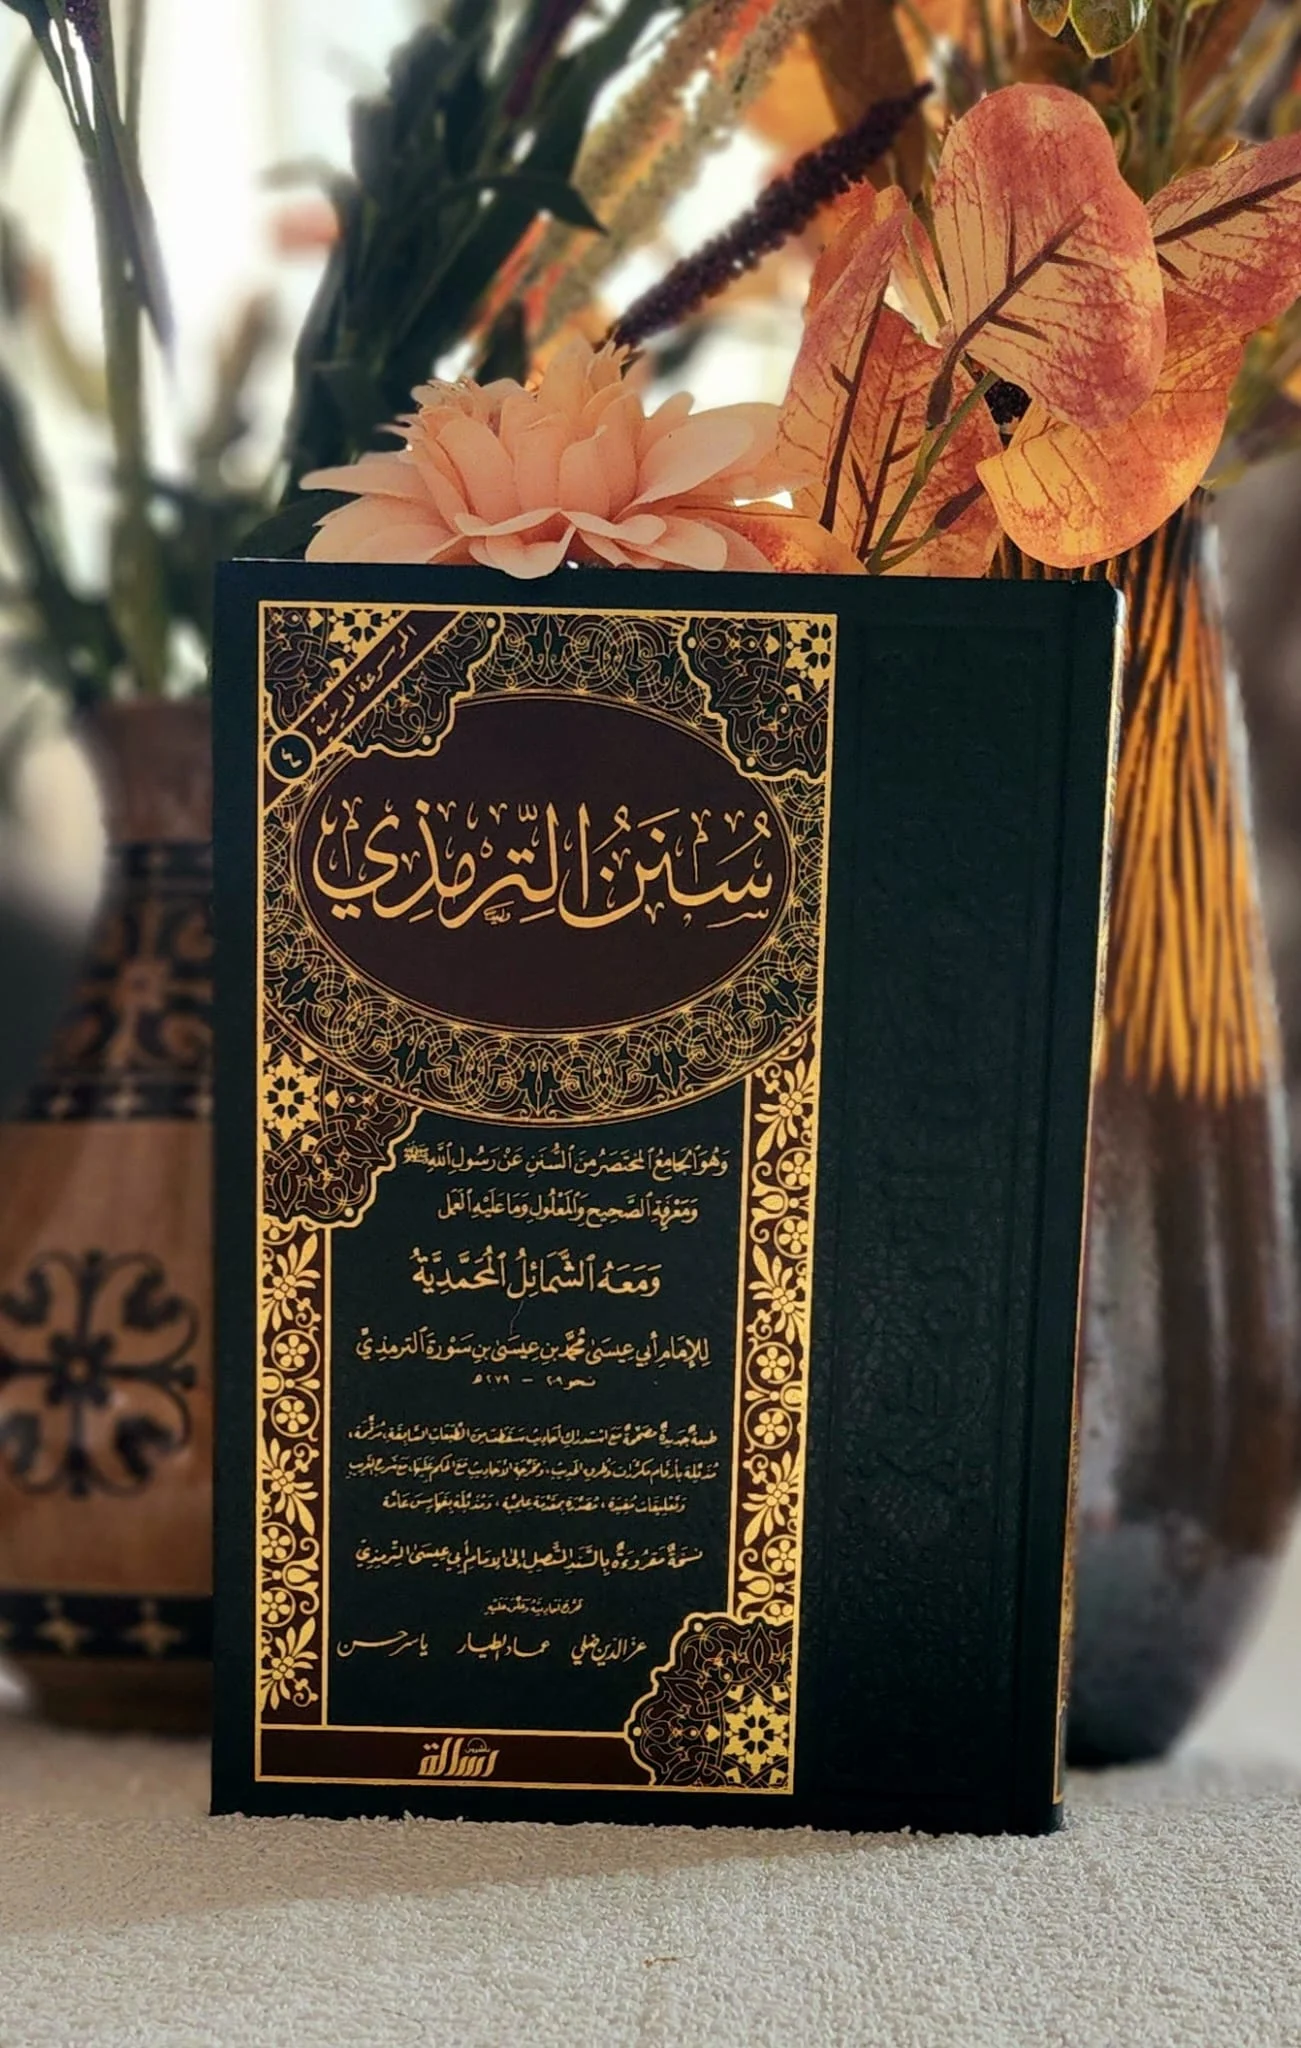 الموسوعة الحديثية
٤
سُنَنُ التِّرمِذِي
وَهُوَ الجَامِعُ المُختَصَرُ مِنَ السُّنَنِ عَنْ رَسُولِ اللَّهِ ﷺ
وَمَعْرِفَةِ الصَّحِيحِ وَالمَعْلُولِ وَمَا عَلَيْهِ العَمَل
وَمَعَهُ الشَّمَائِلُ المُحَمَّدِيَّةُ
لِلإِمَامِ أَبِي عِيسَىٰ مُحَمَّد بنِ عِيسَىٰ بنِ سَوْرَةَ التِّرمِذِيِّ
نحو ٢٠٩ - ٢٧٩ هـ
طبعةٌ جديدةٌ مصحّحةٌ مع استدراك أحاديث سقطت من الطبعات السّابقة، مُرقّمة،
مُذيّلة بأرقام مكررات وطرف الحديث، ومخرّجة الأحاديث مع الحكم عليها، مع شرح الغريب
وتعليقات مفيدة، مُصدّرة بمقدمة علميّة، ومُذيّلة بفهارس عامّة
نسخةٌ مَقروءةٌ بالسَّنَدِ المتّصلِ إلى الإمامِ أبي عيسى التِّرمِذِيِّ
خرّج أحاديثه وعلّق عليه
عزّ الدين ضلي عماد الطيار ياسر حسن
رسالة
ناشرون